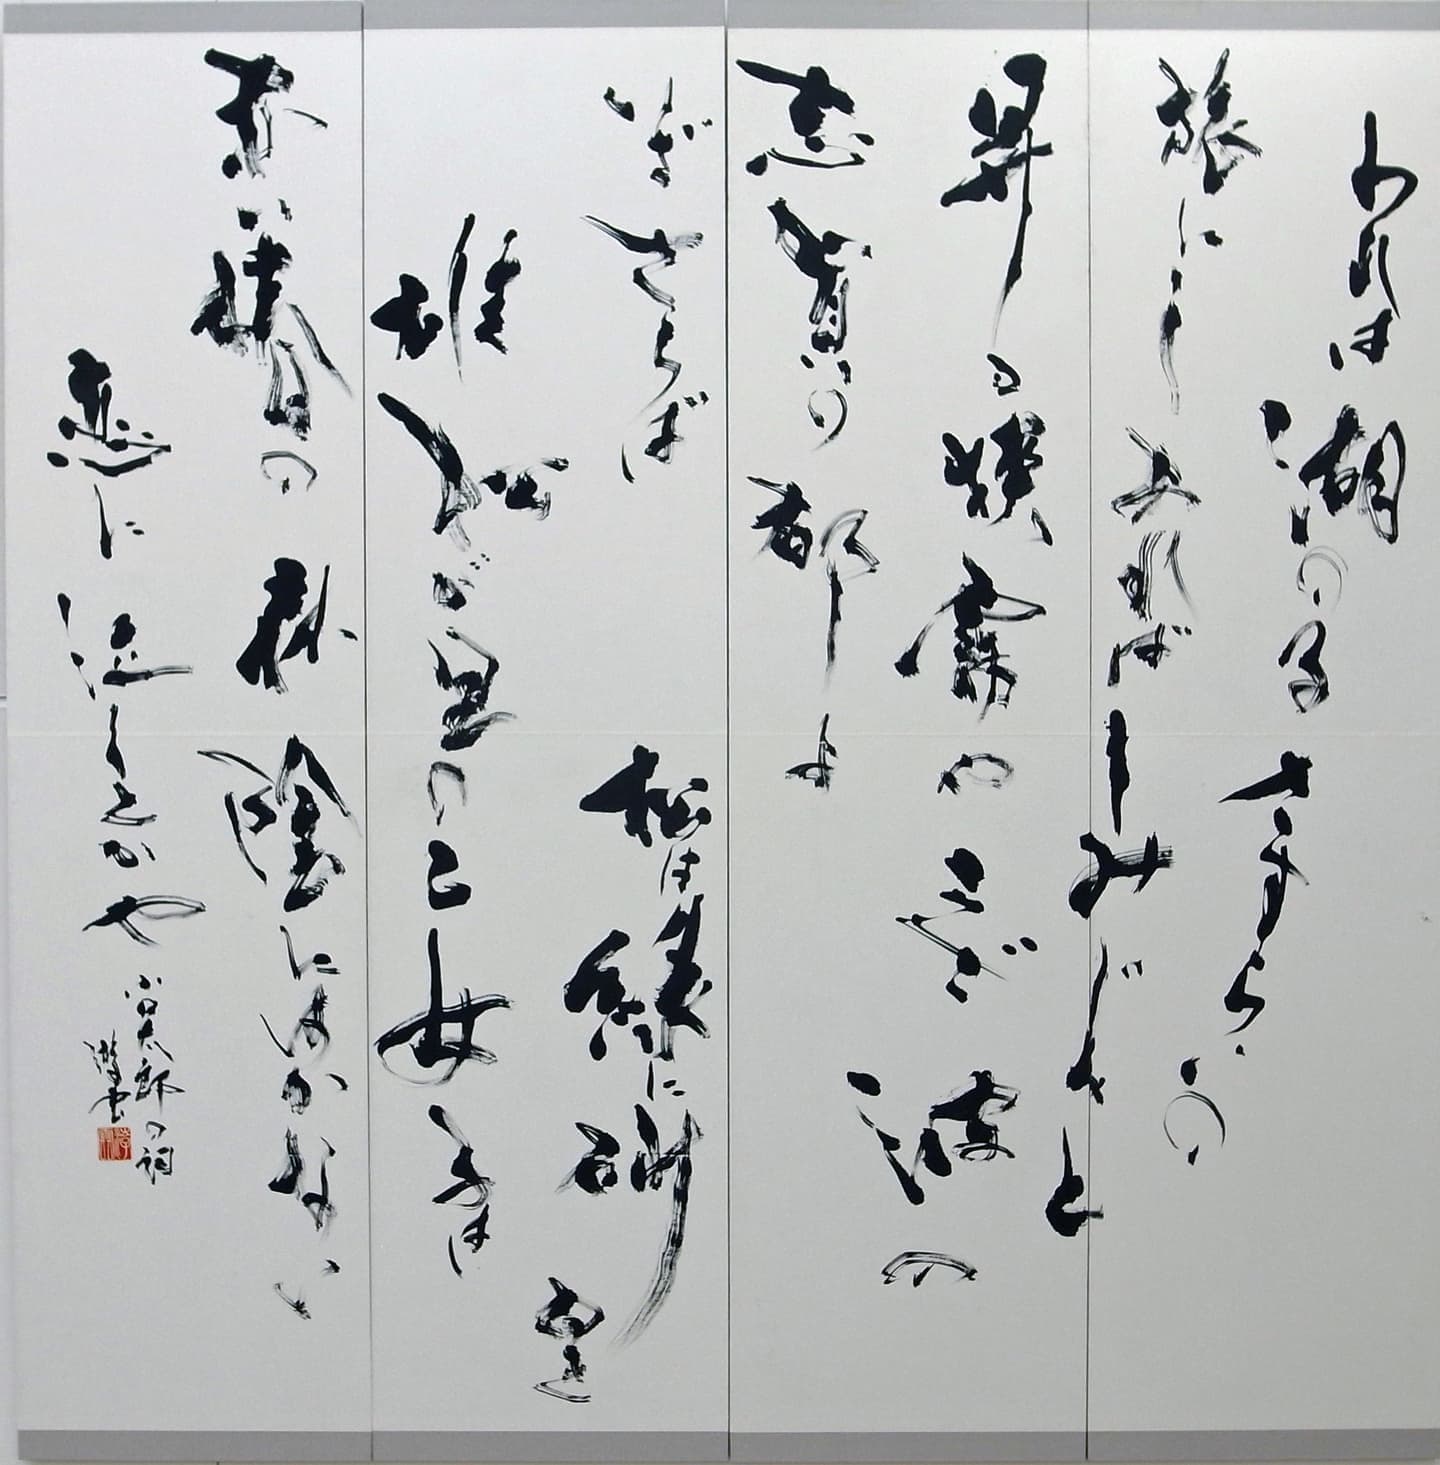 われは湖の子さすらいの
旅にしあればしみじみと
昇る狭霧やさざ波の
志賀の都よ
いざさらば
松は緑に砂白き
雄松が里の乙女子は
赤い椿の森陰にはかない
恋に泣くとかや
小口太郎の詞